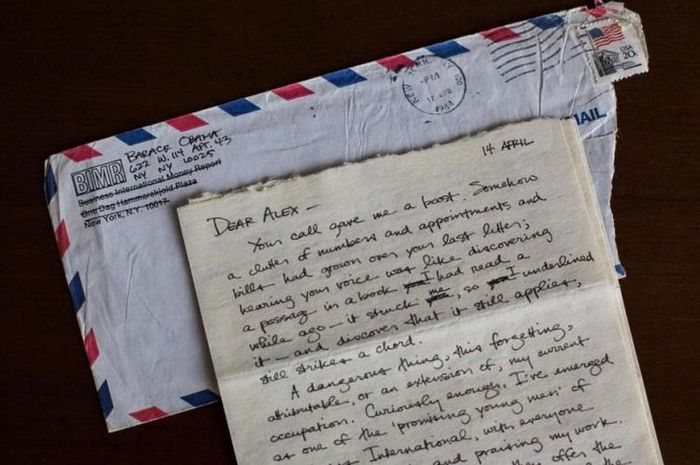 BARACK OBAMA
622 W. 114 APT. 43
NY NY 10025
BIMR
Business International Money Report
One Dag Hammarskjold Plaza
New York, N.Y. 10017
NEW YORK
-PM
17 APR
1984
USA
20c
AIL
14 APRIL
DEAR ALEX —
Your call gave me a boost. Somehow
a clutter of numbers and appointments and
bills had grown over your last letter;
hearing your voice was like discovering
a passage in a book I had read a
while ago — it struck me, so I underlined
it — and discover that it still applies,
still strikes a chord.
A dangerous thing, this forgetting,
attributable, or an extension of, my current
occupation. Curiously enough, I've emerged
as one of the 'promising young men' of
International, with everyone
and praising my work.
offer the